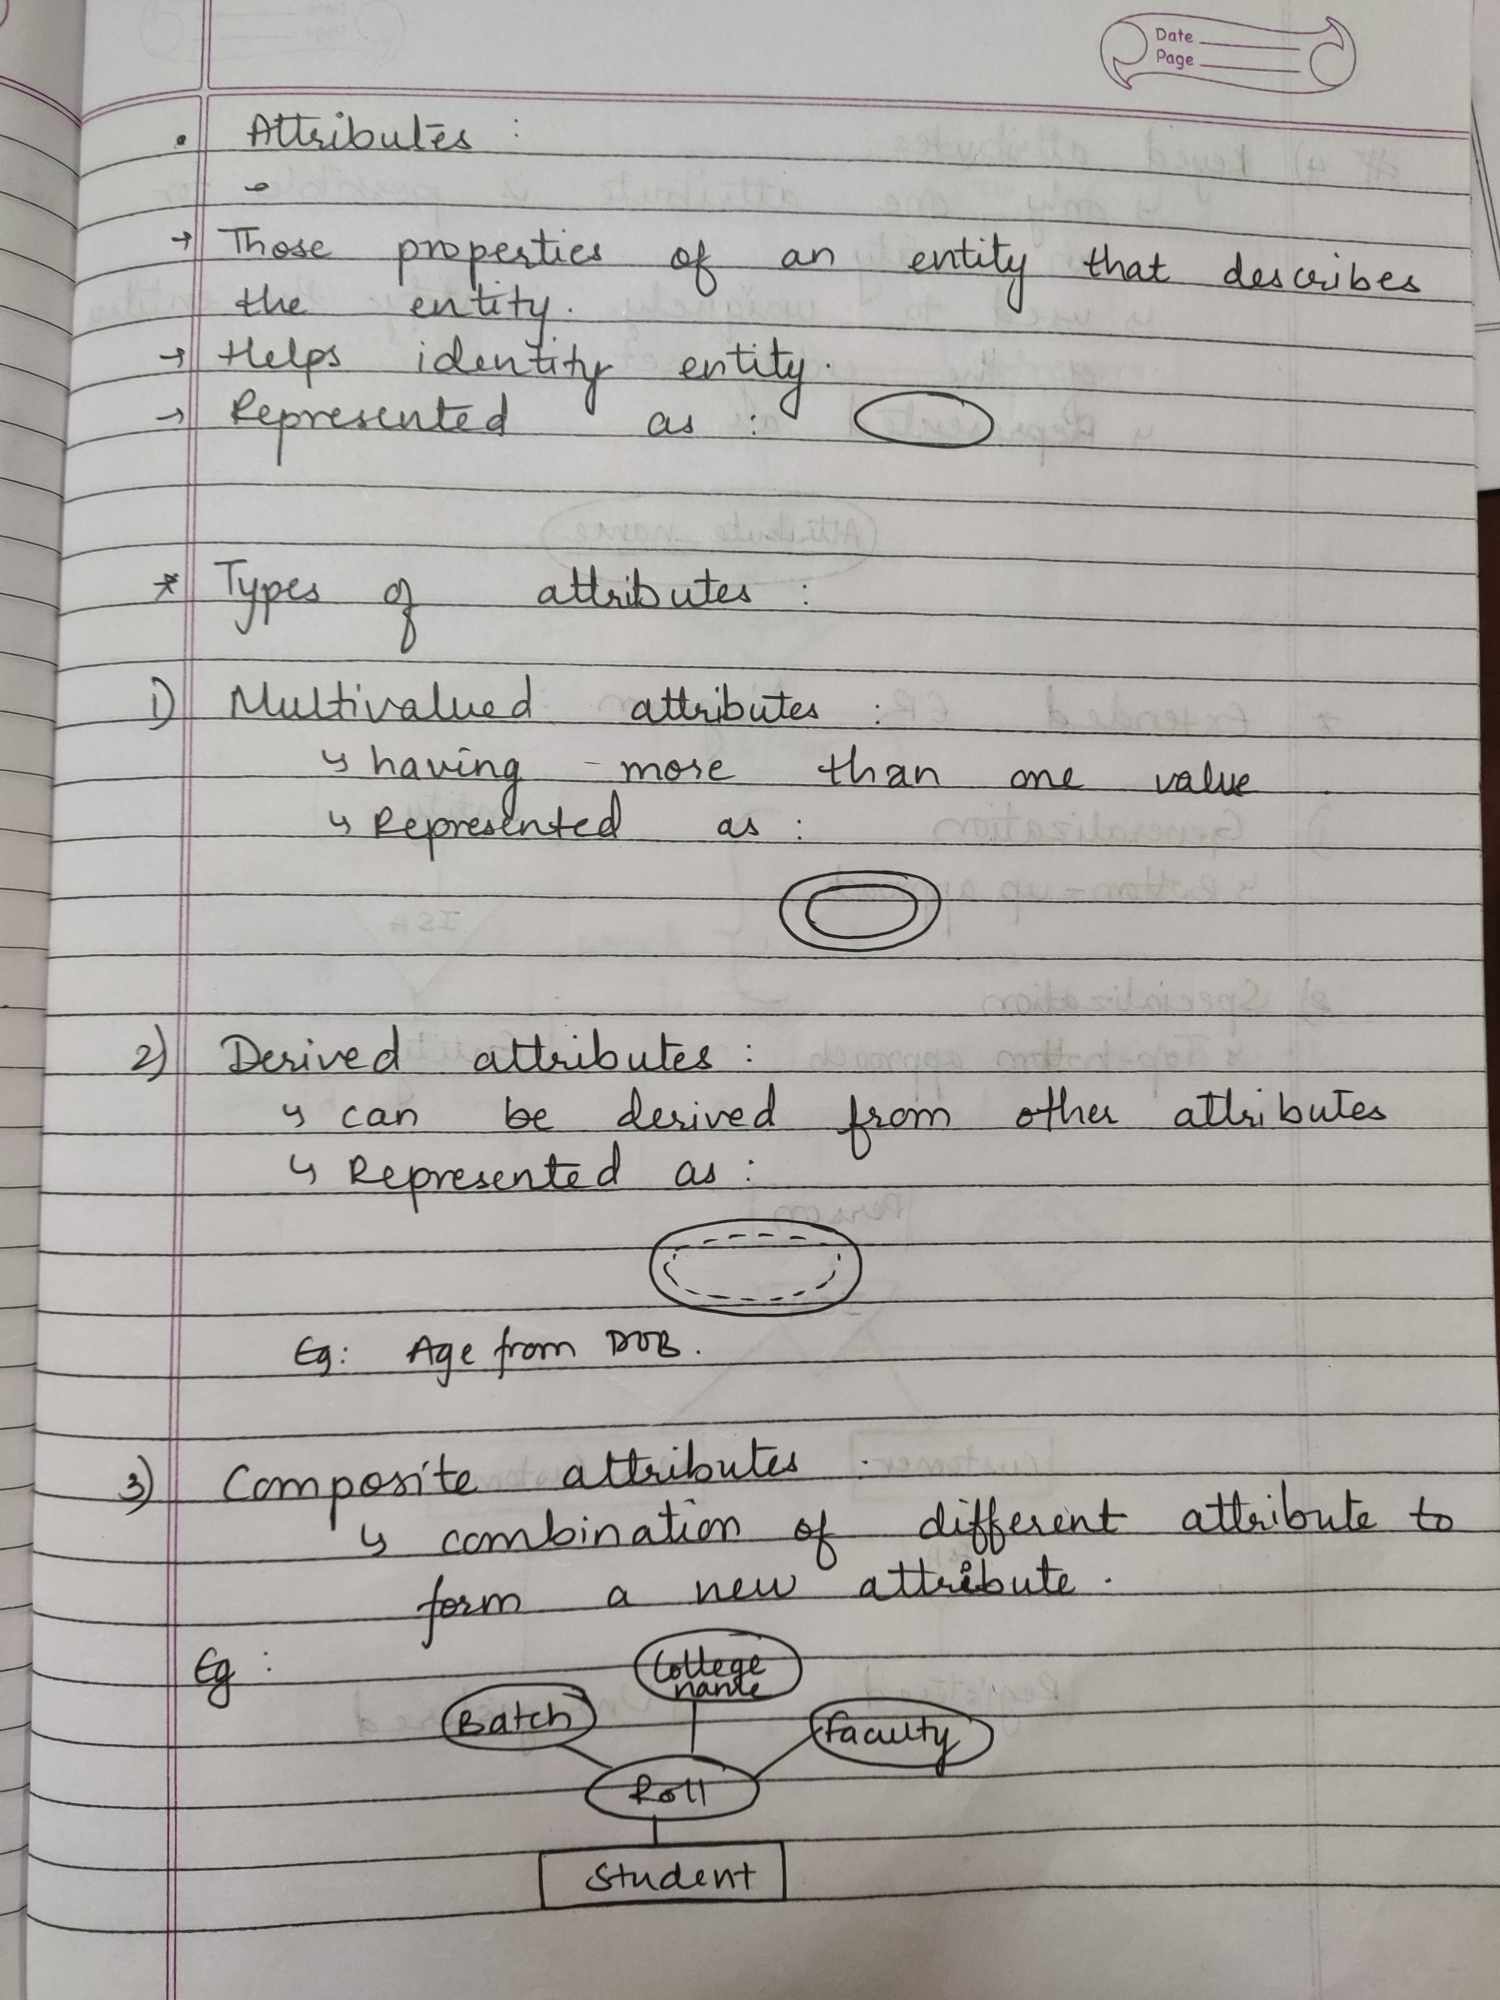 Date
Page
• Attributes :
→ Those properties of an entity that describes
the entity.
→ Helps identity entity.
→ Represented as :
* Types of attributes :
1) Multivalued attributes :
↳ having more than one value
↳ Represented as :
2) Derived attributes :
↳ can be derived from other attributes
↳ Represented as :
Eg: Age from DOB.
3) Composite attributes :
↳ combination of different attribute to
form a new attribute.
Eg :
College
name
Batch
Faculty
Roll
Student